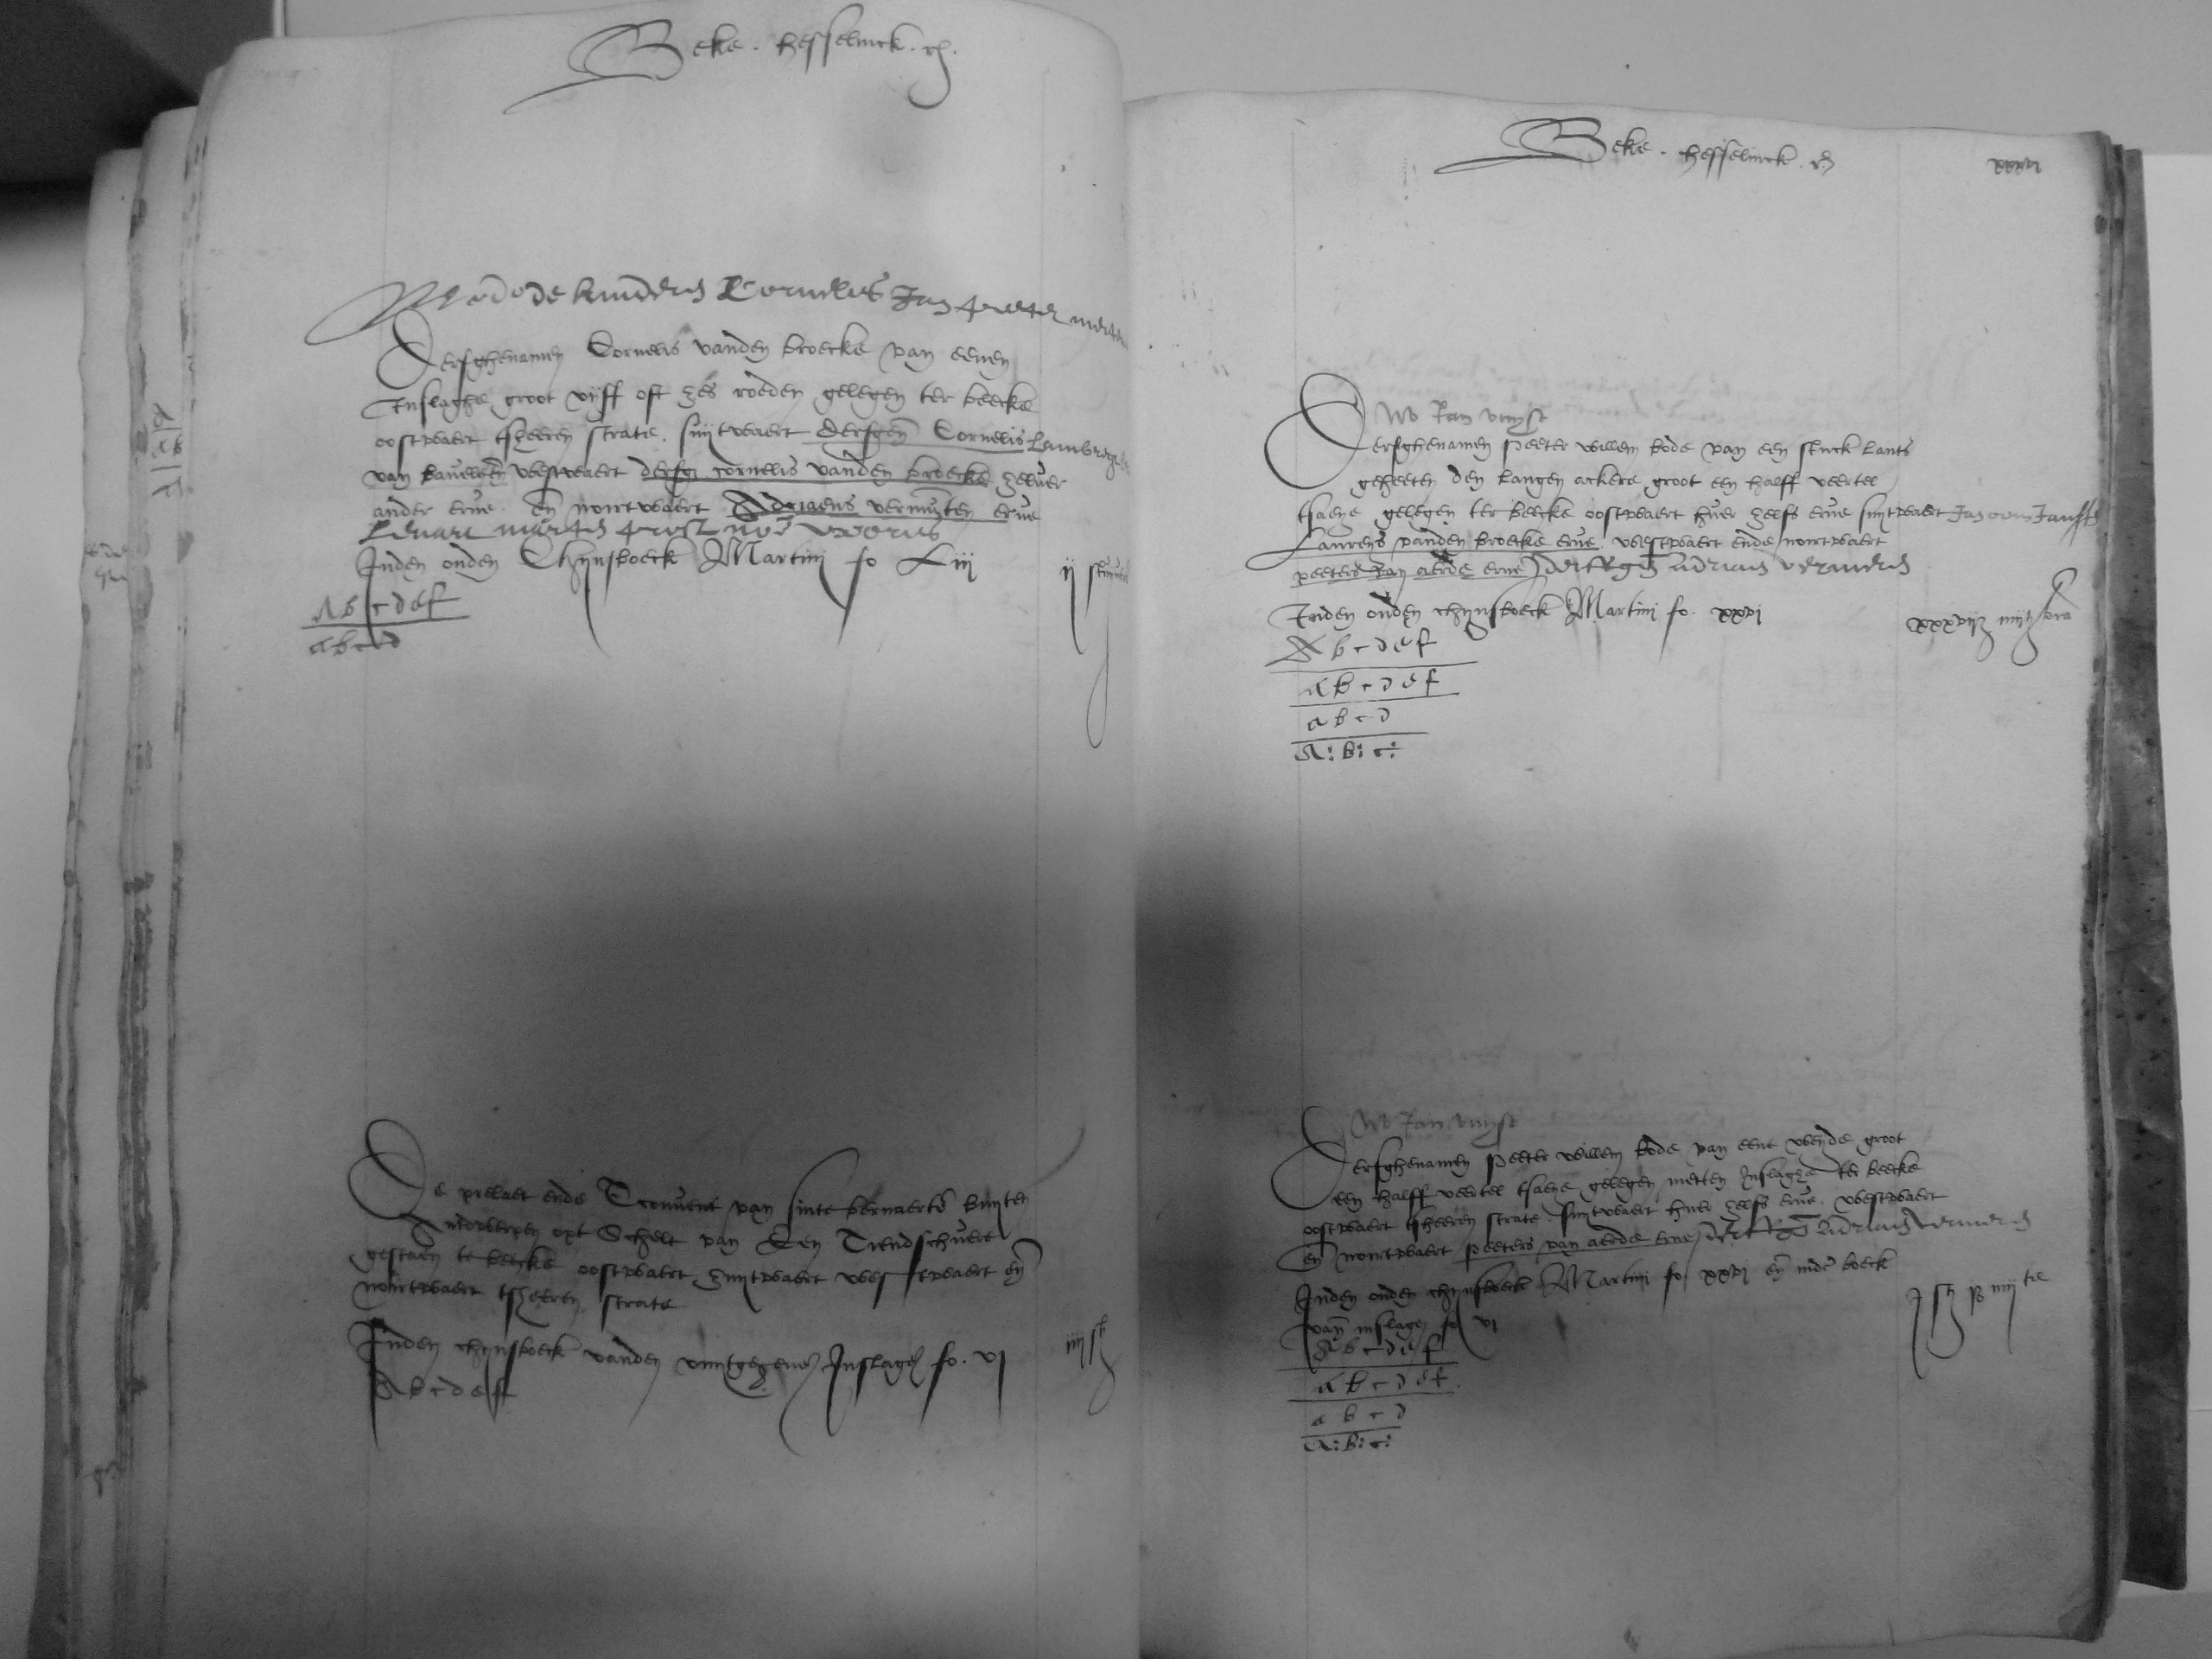 Beke . hesselinck .
de kinderen Cornelis Jan peeter
Derfghenamen Cornelis vanden broecke van eenen
Inslaghe groot vijff oft zes roeden gelegen ter beecke
oostwaert tsheeren strate . suijtwaert derfgen Cornelis Lambrechts
van westwaert derfg. cornelis vanden broecke zeluer
ander erue . en nortwaert Adriaens erue
Inden ouden Chijnsboeck Martini fo Liij ij
A b c d e f
a b c d
De prelaet ende Tconuent van sinte bernaerts buyten
Antwerpen opt Schelt van Een Tiendschuere
gestaen te beecke oostwaert zuijtwaert westwaert en
nortwaert tsheeren strate
Inden chijnsboeck vanden wutgegeuen Inslagen fo. vi iiij
A b c d e f
Beke . hesselinck .
xxxvi
Jan
Derfghenamen Peeter willem bode van een stuck lants
geheeten den langen ackere groot een halff veertel
tsaets gelegen ter beecke oostwaert huer zelfs erue suijtwaert Jan
Laureys vanden broecke erue . westwaert ende nortwaert
peeters van aerde erue Adriaen
Inden ouden chijnsboeck Martini fo. xxvi
A b c d e f
a b c d e f
a b c d
A: b: c:
Jan
Derfghenamen Peeter willem bode van eene weyde groot
een halff veertel tsaets gelegen metten Inslaghe ter beecke
oostwaert tsheeren strate . suijtwaert huer zelfs erue . westwaert
en nortwaert peeters van aerde erue Adriaen
Inden ouden chijnsboeck Martini fo xxvi en inde boeck
van inslagen fo vi
A b c d e f
a b c d e f
a b c d
A: b: c: